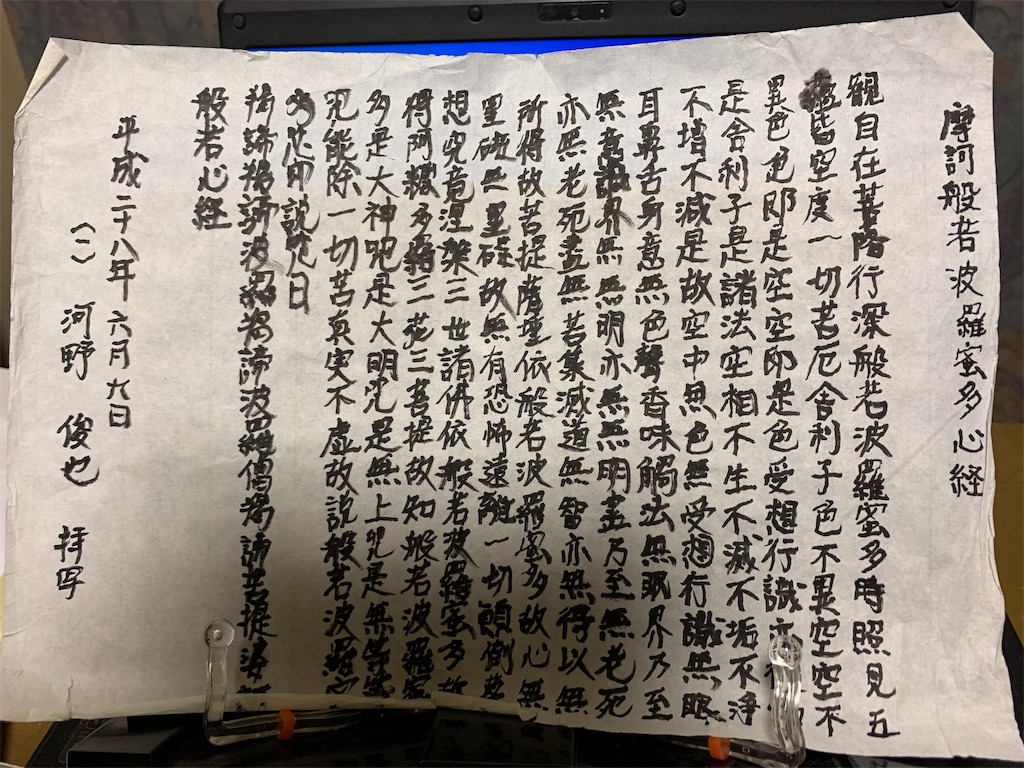 摩訶般若波羅蜜多心経
観自在菩薩行深般若波羅蜜多時照見五
蘊皆空度一切苦厄舎利子色不異空空不
異色色即是空空即是色受想行識亦
是舎利子是諸法空相不生不滅不垢不浄
不増不減是故空中無色無受想行識無眼
耳鼻舌身意無色聲香味觸法無眼界乃至
無意識界無無明亦無無明盡乃至無老死
亦無老死盡無苦集滅道無智亦無得以無
所得故菩提薩埵依般若波羅蜜多故心無
罣礙無罣礙故無有恐怖遠離一切顛倒夢
想究竟涅槃三世諸佛依般若波羅蜜多故
得阿耨多羅三藐三菩提故知般若波羅蜜
多是大神呪是大明呪是無上呪是無等等
呪能除一切苦真実不虚故説般若波羅蜜
多呪即説呪曰
羯諦羯諦波羅羯諦波羅僧羯諦菩提娑
般若心経
平成二十八年六月九日
(一) 河野 俊也 拝写